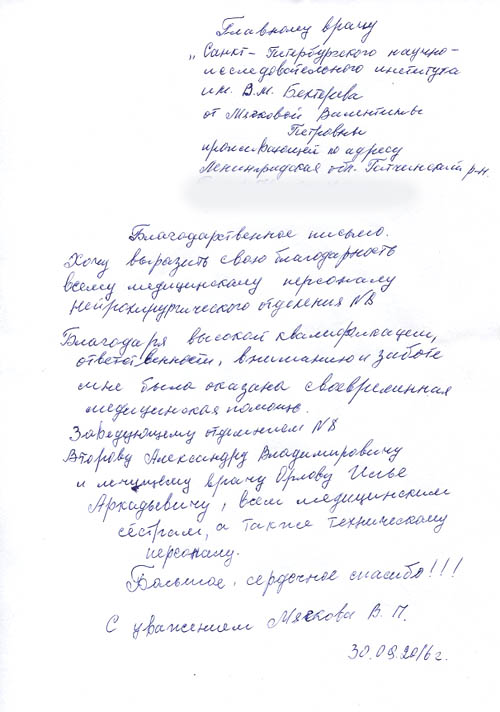 Главному врачу
„Санкт-Петербургского научно-
исследовательного института
им. В.М. Бехтерева
от Мячковой Валентины
Петровны
проживающей по адресу
Ленинградская обл. Гатчинский р-н.
Благодарственное письмо.
Хочу выразить свою благодарность
всему медицинскому персоналу
нейрохирургического отделения №8
Благодаря высокой квалификации,
ответственности, вниманию и заботе
мне была оказана своевременная
медицинская помощь.
Заведующему отделением №8
Второву Александру Владимировичу
и лечущему врачу Орлову Илье
Аркадьевичу, всем медицинским
сёстрам, а также техническому
персоналу.
Большое, сердечное спасибо!!!
С уважением Мячкова В. П.
30.09.2016г.